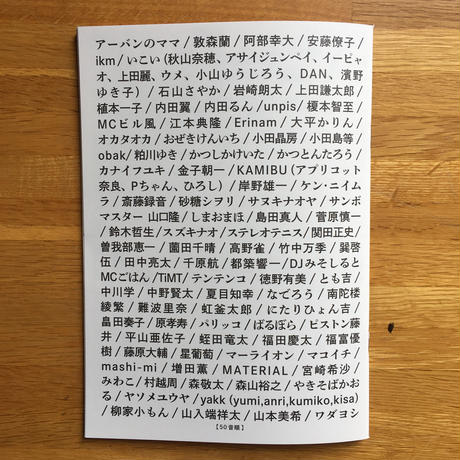 アーバンのママ / 敦森蘭 / 阿部幸大 / 安藤僚子 /
ikm / いこい（秋山奈穂、アサイジュンペイ、イーピャ
オ、上田麗、ウメ、小山ゆうじろう、DAN、濱野
ゆき子） / 石山さやか / 岩崎朗太 / 上田謙太郎 /
植本一子 / 内田翼 / 内田るん / unpis / 榎本智至 /
MCビル風 / 江本典隆 / Erinam / 大平かりん /
オカタオカ / おぜきけんいち / 小田晶房 / 小田島等 /
obak / 粕川ゆき / かつしかけいた / かつとんたろう /
カナイフユキ / 金子朝一 / KAMIBU（アプリコット
奈良、Pちゃん、ひろし） / 岸野雄一 / ケン・ニイム
ラ / 斎藤録音 / 砂糖シヲリ / サヌキナオヤ / サンボ
マスター 山口隆 / しまおまほ / 島田真人 / 菅原慎一
/ 鈴木哲生 / スズキナオ / ステレオテニス / 関田正史 /
曽我部恵一 / 薗田千晴 / 高野雀 / 竹中万季 / 巽啓
伍 / 田中亮太 / 千原航 / 都築響一 / DJみそしると
MCごはん / TiMT / テンテンコ / 徳野有美 / とも吉 /
中川学 / 中野賢太 / 夏目知幸 / なでろう / 南陀楼
綾繁 / 難波里奈 / 虹釜太郎 / にたりひょん吉 /
畠田奏子 / 原孝寿 / パリッコ / ばるぼら / ピストン藤
井 / 平山亜佐子 / 蛭田竜太 / 福田慶太 / 福富優
樹 / 藤原大輔 / 星葡萄 / マーライオン / マコイチ /
mashi-mi / 増田薫 / MATERIAL / 宮崎希沙 /
みわこ / 村越周 / 森敬太 / 森山裕之 / やきそばかお
る / ヤソメユウヤ / yakk (yumi,anri,kumiko,kisa)
/ 柳家小もん / 山入端祥太 / 山本美希 / ワダヨシ
【50音順】